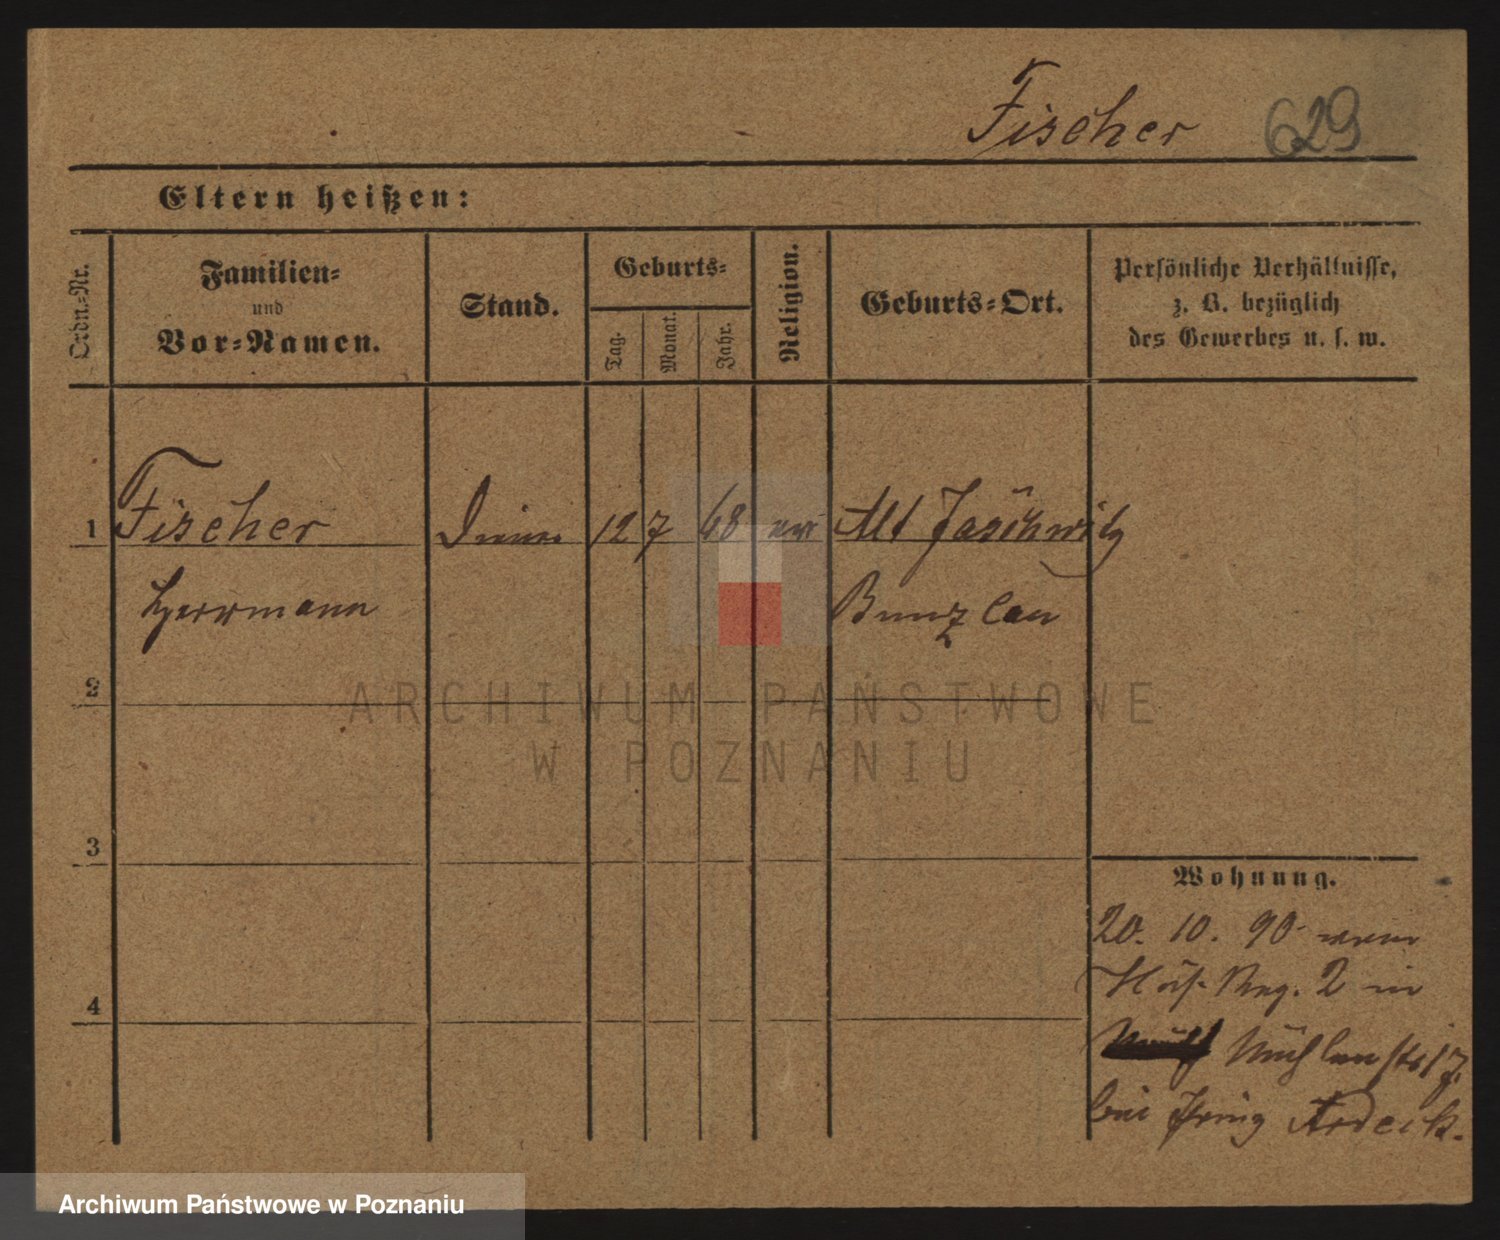 Fischer 629
Eltern heißen:
Ordn.=Nr.
Familien=
und
Vor=Namen.
Stand.
Geburts=
Tag.
Monat.
Jahr.
Religion.
Geburts=Ort.
Persönliche Verhältnisse,
z. B. bezüglich
des Gewerbes u. s. w.
1 Fischer 12 7 68 Alt Jäschwitz
Herrmann Bunzlau
2
ARCHIWUM PAŃSTWOWE
W POZNANIU
3
Wohnung.
20. 10. 90 vom
Reg. 2 in
4
Mühlenstr 17.
bei Ardeck.
Archiwum Państwowe w Poznaniu